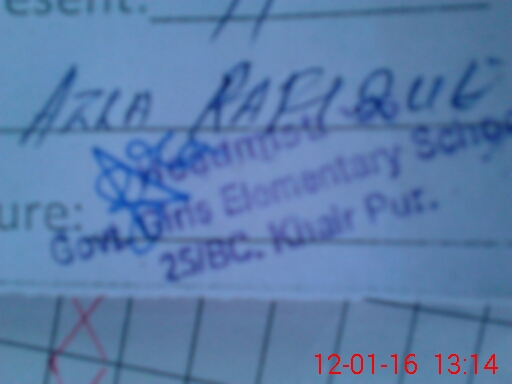 resent:
AZRA RAFIQUE
Headmistress
ure:
Govt. Girls Elementary School
25/BC. Khair Pur.
12-01-16 13:14